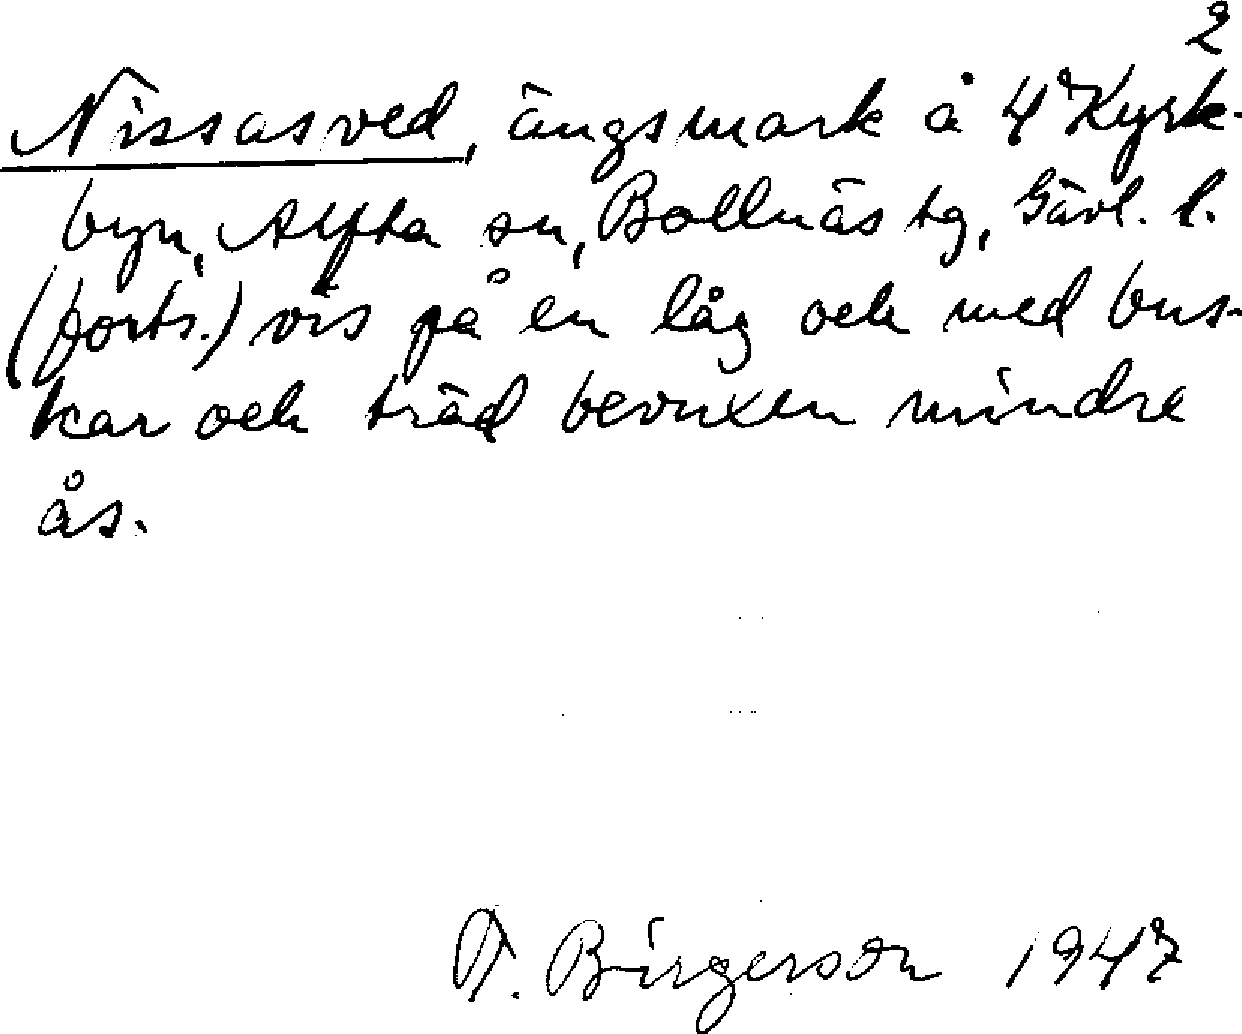 2
Nissasved, ängsmark å 4² Kyrk-
byn, Alfta sn, Bollnäs tg, Gävl. l.
(forts.) vis på en låg och med bus-
kar och träd bevuxen mindre
ås.
Birgerson 1947